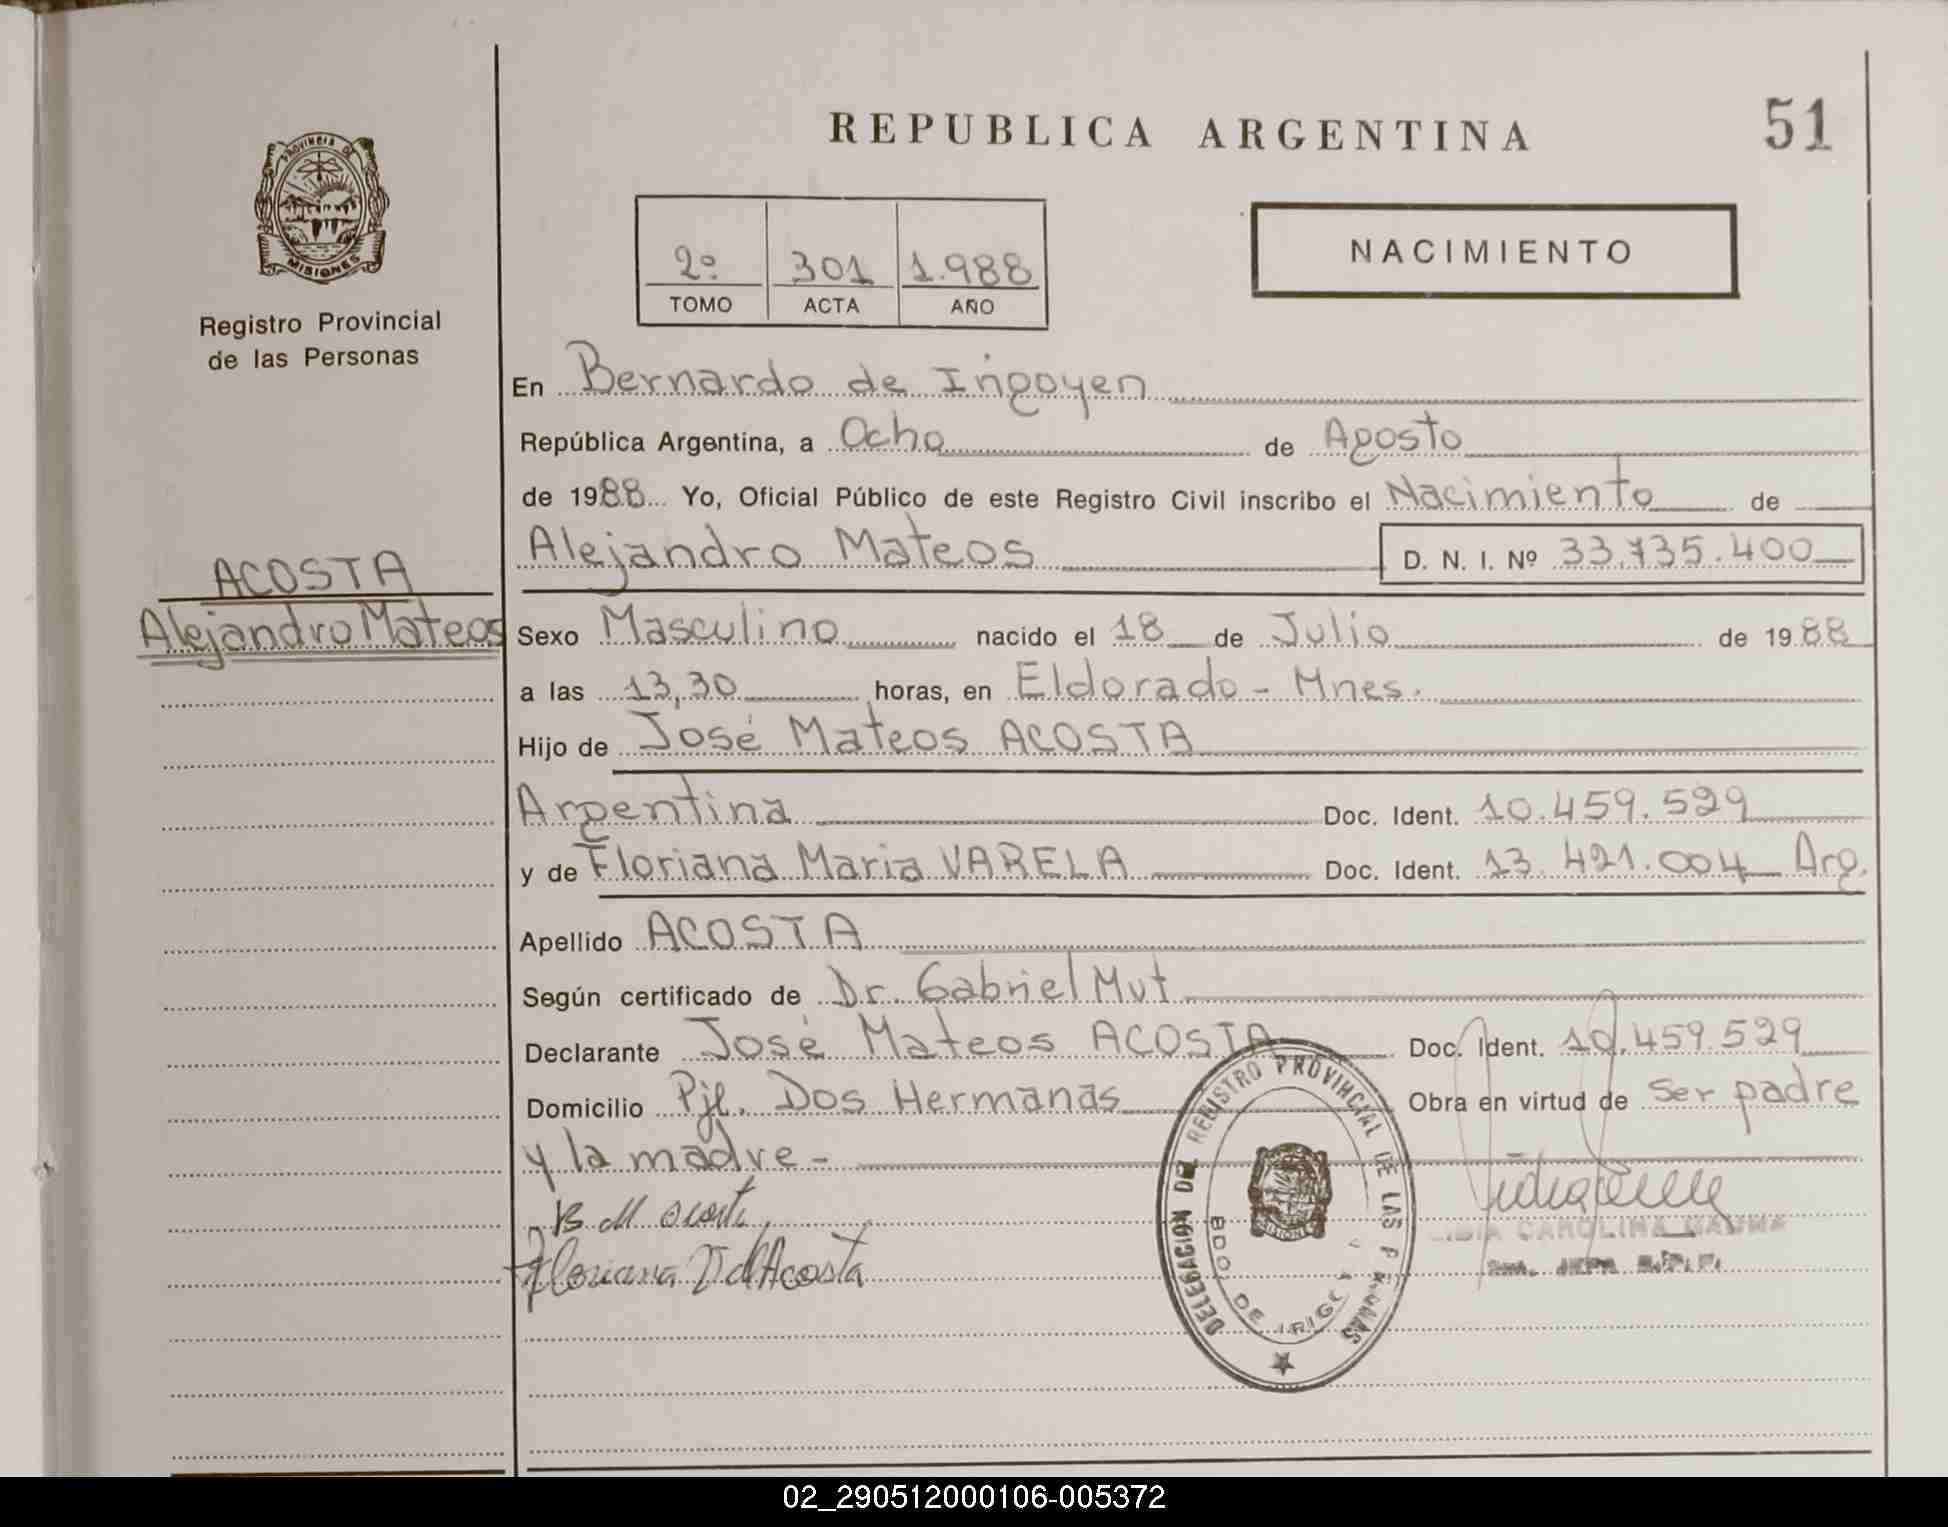 REPUBLICA ARGENTINA
51
PROVINCIA DE
MISIONES
Registro Provincial
de las Personas
2º 301 1.988
TOMO ACTA AÑO
NACIMIENTO
En Bernardo de Irigoyen
República Argentina, a Ocho de Agosto
de 1988 Yo, Oficial Público de este Registro Civil inscribo el Nacimiento de
Alejandro Mateos D. N. I. Nº 33.735.400
ACOSTA
Alejandro Mateos
Sexo Masculino nacido el 18 de Julio de 1988
a las 13,30 horas, en Eldorado - Mnes.
Hijo de José Mateos ACOSTA
Argentina Doc. Ident. 10.459.529
y de Floriana Maria VARELA Doc. Ident. 13.421.004 Arg.
Apellido ACOSTA
Según certificado de Dr. Gabriel Mut
Declarante José Mateos ACOSTA Doc. Ident. 10.459.529
Domicilio Pje. Dos Hermanas Obra en virtud de ser padre
y la madre -
Floriana V d Acosta
DELEGACIÓN DEL REGISTRO PROVINCIAL DE LAS PERSONAS
BDO. DE IRIGOYEN
MISIONES
CAROLINA
02_290512000106-005372